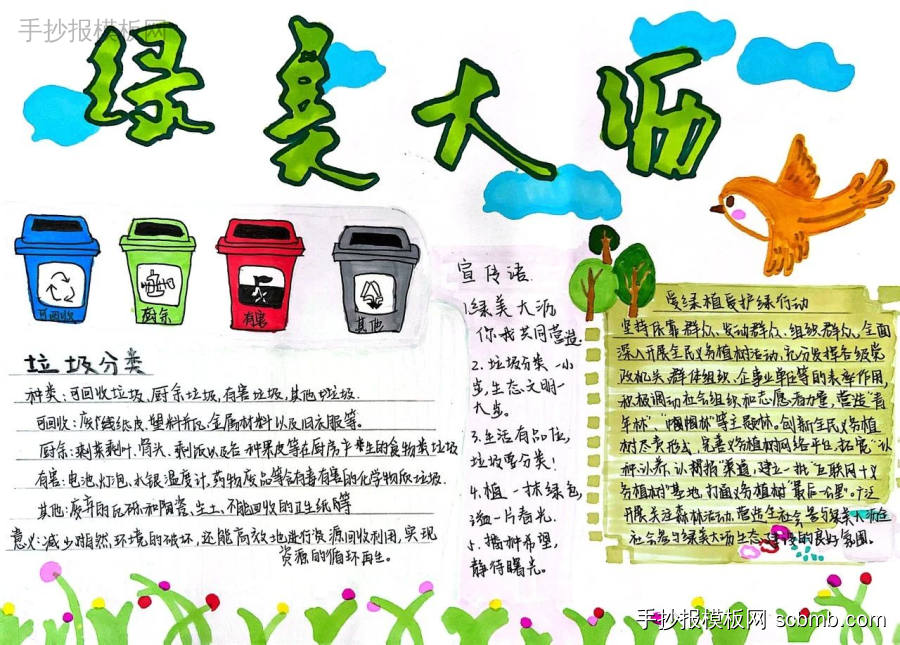 手抄报模板网
绿美大沥
可回收
厨余
有害
其他
垃圾分类
种类:可回收垃圾、厨余垃圾、有害垃圾、其他垃圾.
可回收:废纸纸皮、塑料瓶、金属材料以及旧衣服等。
厨余:剩菜剩叶、骨头、剩饭以及各种果皮等在厨房中产生的食物类垃圾
有害:电池、灯泡、水银温度计、药物废品等含有毒有害的化学物质垃圾.
其他:废弃的瓦砖和陶瓷、尘土、不能回收的卫生纸等
意义:减少对自然环境的破坏,还能高效地进行资源回收利用,实现
资源的循环再生。
宣传语
1.绿美大沥
你我共同营造.
2.垃圾分类一小
步,生态文明一
大步。
3.生活有品位,
垃圾要分类!
4.植一抹绿色,
一片春光.
5.播种希望,
静待曙光。
爱绿植绿护绿行动
坚持依靠群众、发动群众、组织群众、全面
深入开展全民义务植树活动,充分发挥各级党
政机关、群体组织、企事业单位等的表率作用,
积极调动社会组织和志愿者力量,营造“青
年林”、“巾帼林”等主题林。创新全民义务植
树尽责形式,完善义务植树网络平台,拓宽“认
种认养、认捐”渠道,建立一批“互联网+义
务植树”基地,打通义务植树“最后一公里”。广泛
开展关注森林活动,营造全社会参与绿美大沥
社会参与绿美大沥生态建设的良好氛围。
手抄报模板网 scbmb.com